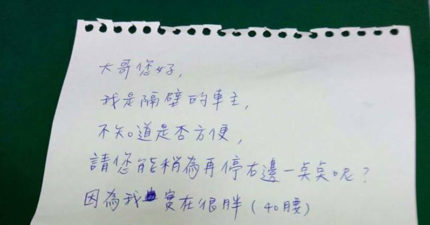 大哥您好,
我是隔壁的車主,
不知道是否方便,
請您能稍為再停右邊一點點呢?
因為我實在很胖(40腰)